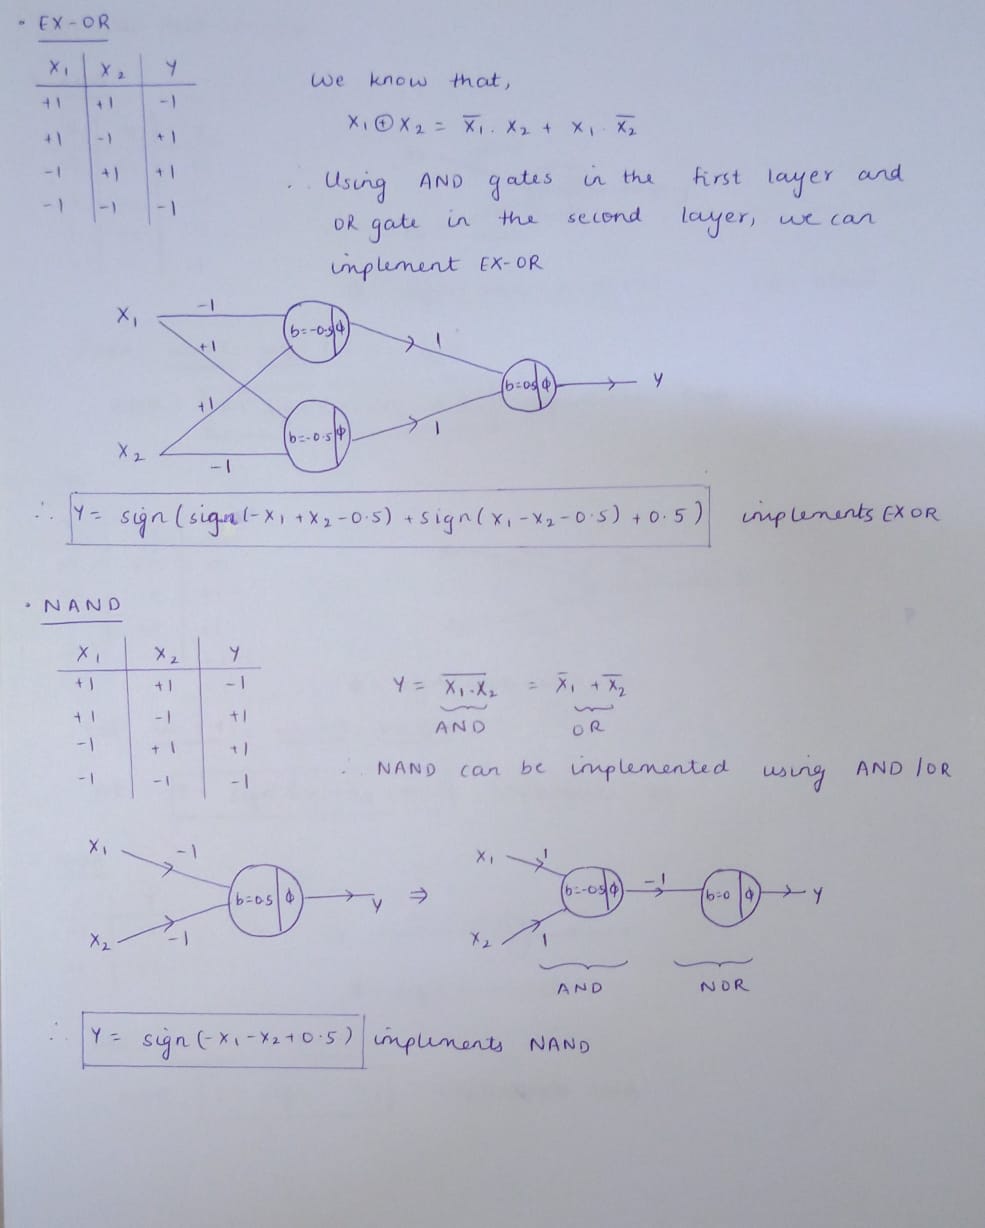 • EX-OR
X1 X2 Y
+1 +1 -1
+1 -1 +1
-1 +1 +1
-1 -1 -1
We know that,
X1 ⊕ X2 = X̅1. X2 + X1. X̅2
∴ Using AND gates in the first layer and
OR gate in the second layer, we can
implement EX-OR
X1 -1 b=-0.5 φ 1
+1
b=0.5 φ Y
+1
X2 -1 b=-0.5 φ 1
∴ Y = sign(sign(-X1 + X2 - 0.5) + sign(X1 - X2 - 0.5) + 0.5) implements EXOR
• NAND
X1 X2 Y
+1 +1 -1
+1 -1 +1
-1 +1 +1
-1 -1 -1
Y = \overline{X1.X2} = X̅1 + X̅2
AND OR
∴ NAND can be implemented using AND/OR
X1 -1
b=0.5 φ Y
X2 -1
⇒
X1 1
b=-0.5 φ -1 b=0 φ Y
X2 1
AND NOR
∴ Y = sign(-X1 - X2 + 0.5) implements NAND